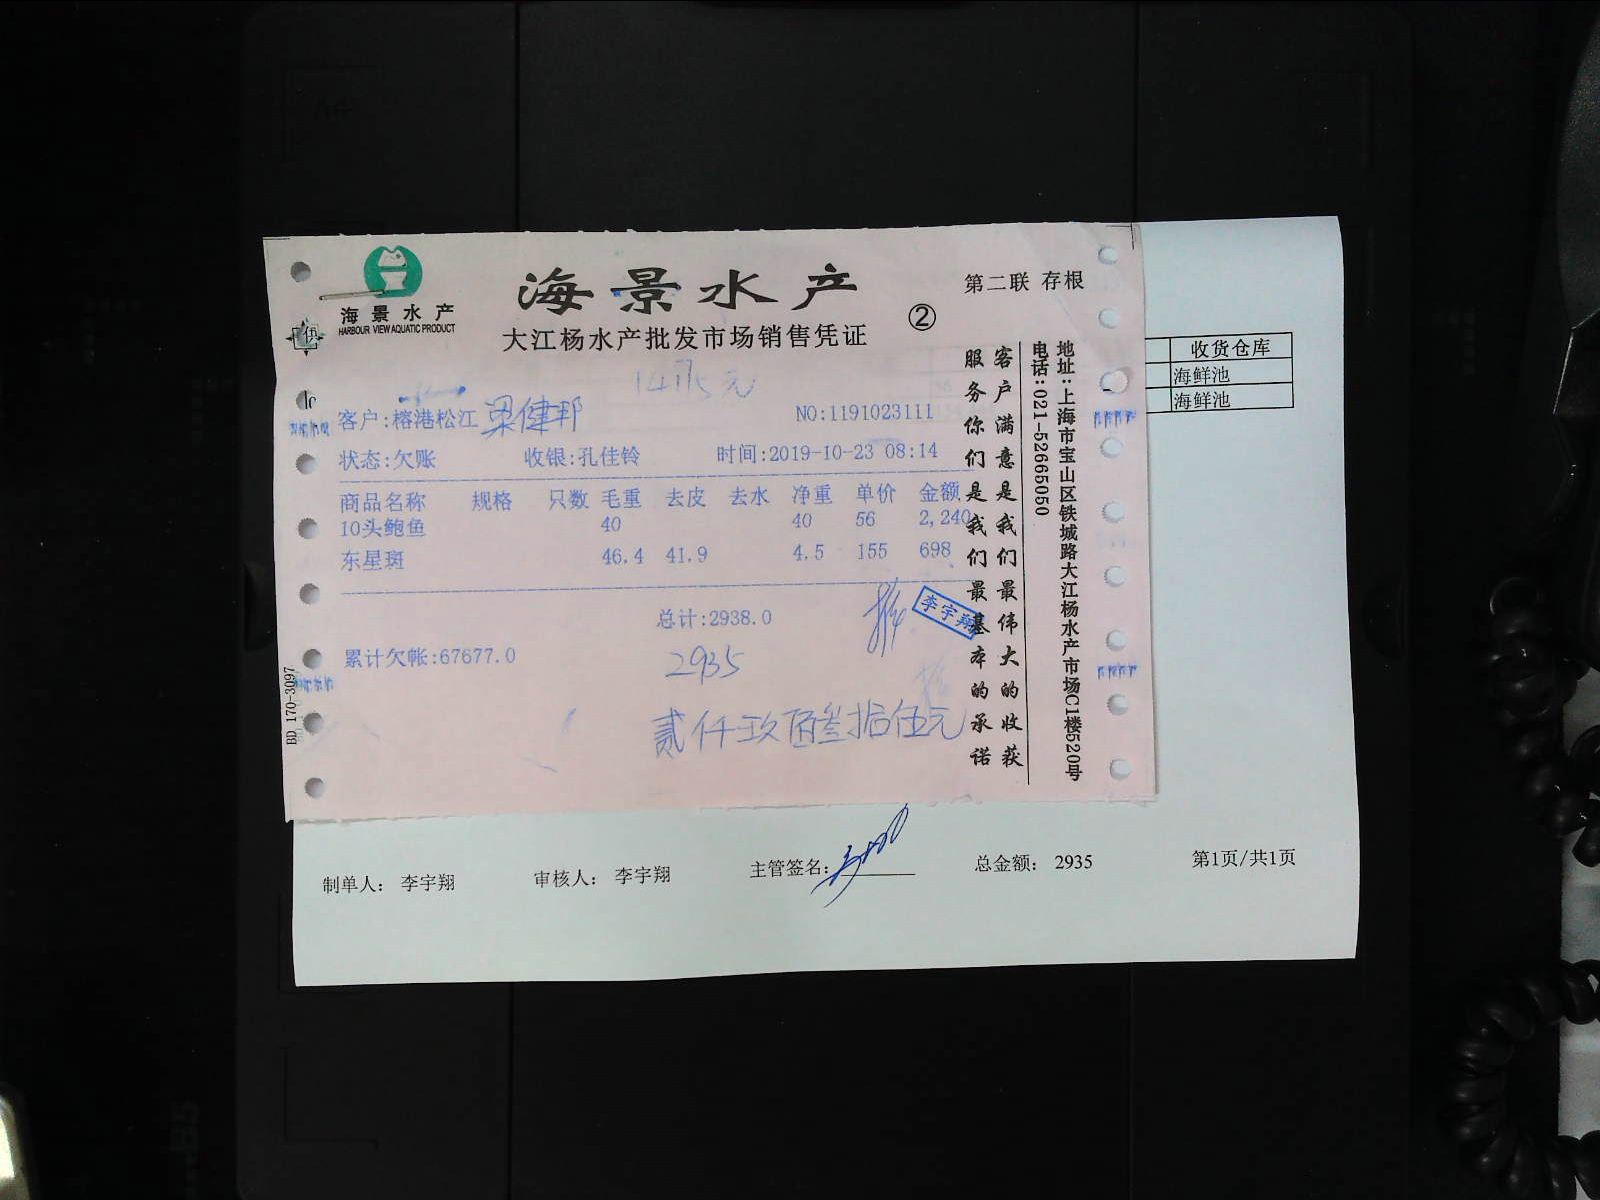 海景水产
HARBOUR VIEW AQUATIC PRODUCT
海景水产
大江杨水产批发市场销售凭证
②
第二联 存根
客户:榕港松江 梁健邦
NO:1191023111
状态:欠账 收银:孔佳铃 时间:2019-10-23 08:14
商品名称 规格 只数 毛重 去皮 去水 净重 单价 金额
10头鲍鱼 40 40 56 2,240
东星斑 46.4 41.9 4.5 155 698
总计:2938.0
李宇翔
累计欠帐:67677.0
2935
贰仟玖佰叁拾伍元
客户满意是我们最伟大的收获
服务你们是我们最基本的承诺
地址:上海市宝山区铁城路大江杨水产市场C1楼520号
电话:021-52665050
BD 170-3097
收货仓库
海鲜池
海鲜池
制单人: 李宇翔 审核人: 李宇翔 主管签名: 总金额: 2935 第1页/共1页